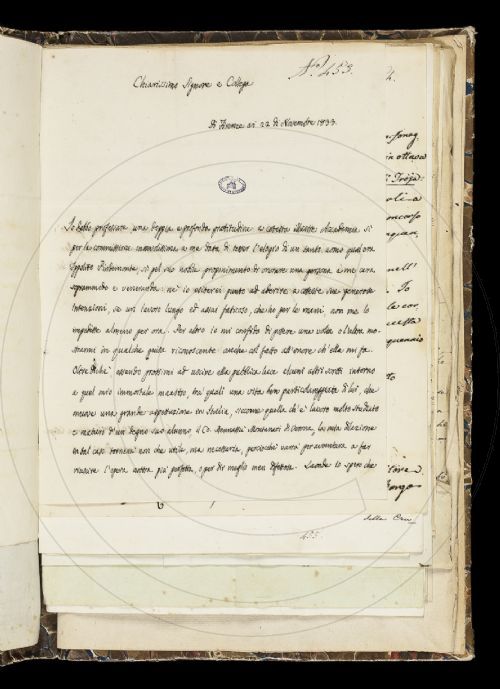 N.° 453.
Chiarissimo Signore e Collega
Di Firenze ai 22 di Novembre 1833.
Io debbo professare una doppia e profonda gratitudine a cotesta illustre Accademia sì
per la commissione onorevolissima a me data di tesser l'elogio di un tanto uomo qual era
Ippolito Pindemonte, sì pel suo nobile proponimento di onorare una persona a me cara
sommamente e veneranda: nè io indugerei punto ad aderire a coteste sue generose
intenzioni, se un lavoro lungo ed assai faticoso, che ho per le mani, non me lo
impedisse almeno per ora. Per altro io mi confido di potere una volta o l'altra mo-
strarmi in qualche guisa riconoscente anche col fatto all'onore ch'ella mi fa.
Oltredichè essendo prossimi ad uscire alla pubblica luce alcuni altri scritti intorno
a quel mio immortale maestro, tra' quali una vita ben particolareggiata di lui, che
muove una grande aspettazione in Italia, siccome quella ch'è lavoro molto studiato
e maturo d'un degno suo alunno, il Co. Bennassù Montanari di Verona, la mia dilazione
in tal caso tornerà non che utile, ma necessaria, perciocchè varrà per avventura a far
riuscire l'opera nostra più perfetta, o per dir meglio men difettosa. Laonde io spero che
della Cru
455.
in ottava
Tròja
concorso
nell'
Io